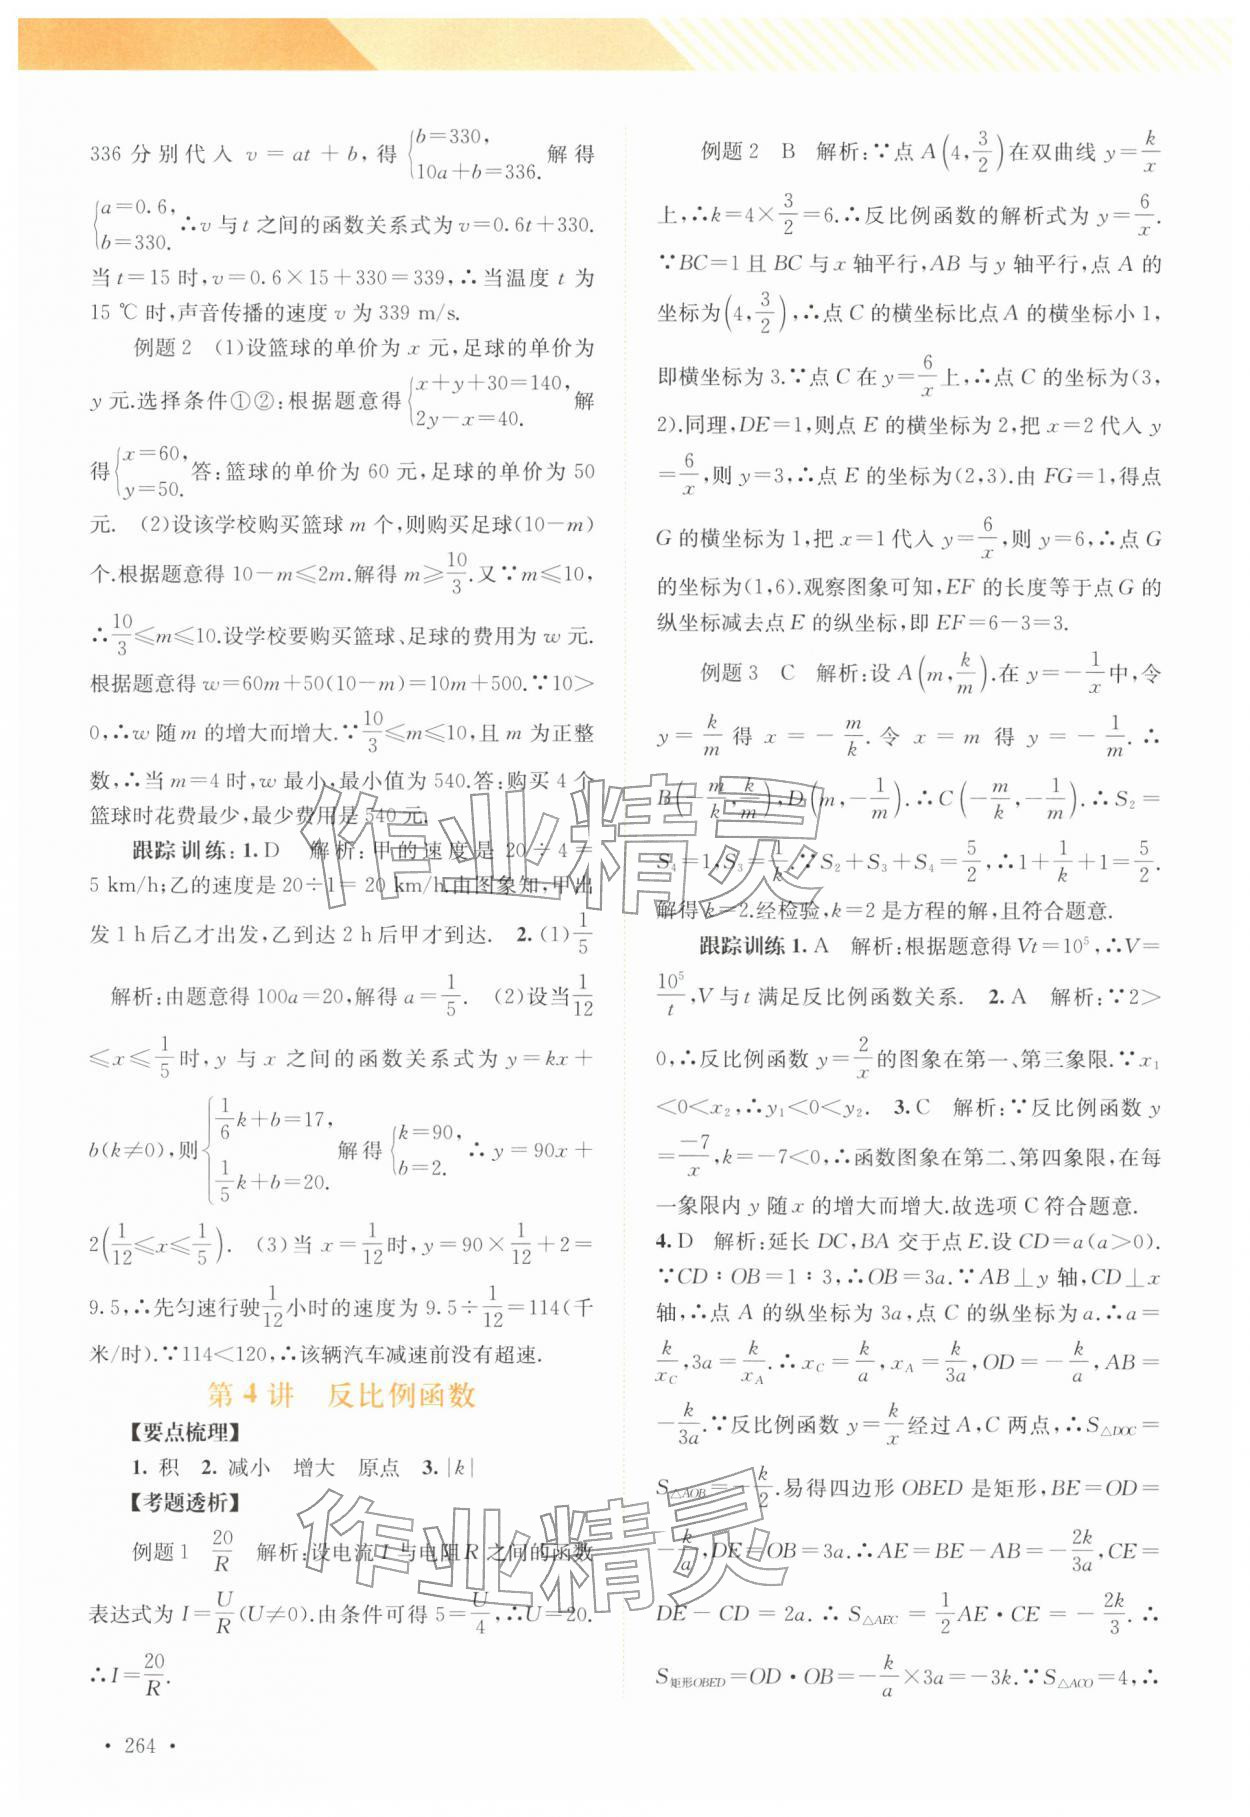 336 分别代入 v=at+b,得{b=330, 10a+b=336. 解得
{a=0.6, b=330. ∴v与t之间的函数关系式为v=0.6t+330.
当t=15时,v=0.6×15+330=339,∴当温度t为
15 ℃时,声音传播的速度v为339 m/s.
例题2 (1)设篮球的单价为x元,足球的单价为
y元.选择条件①②:根据题意得{x+y+30=140, 2y-x=40. 解
得{x=60, y=50. 答:篮球的单价为60元,足球的单价为50
元. (2)设该学校购买篮球m个,则购买足球(10-m)
个.根据题意得10-m≤2m.解得m≥10/3.又∵m≤10,
∴10/3≤m≤10.设学校要购买篮球、足球的费用为w元.
根据题意得w=60m+50(10-m)=10m+500.∵10>
0,∴w随m的增大而增大.∵10/3≤m≤10,且m为正整
数,∴当m=4时,w最小,最小值为540.答:购买4个
篮球时花费最少,最少费用是540元.
跟踪训练:1.D 解析:甲的速度是20÷4=
5 km/h;乙的速度是20÷1=20 km/h.由图象知,甲出
发1 h后乙才出发,乙到达2 h后甲才到达. 2.(1)1/5
解析:由题意得100a=20,解得a=1/5. (2)设当1/12
≤x≤1/5时,y与x之间的函数关系式为y=kx+
b(k≠0),则{1/6k+b=17, 1/5k+b=20. 解得{k=90, b=2. ∴y=90x+
2(1/12≤x≤1/5). (3)当x=1/12时,y=90×1/12+2=
9.5,∴先匀速行驶1/12小时的速度为9.5÷1/12=114(千
米/时).∵114<120,∴该辆汽车减速前没有超速.
第4讲 反比例函数
【要点梳理】
1.积 2.减小 增大 原点 3.|k|
【考题透析】
例题1 20/R 解析:设电流I与电阻R之间的函数
表达式为I=U/R(U≠0).由条件可得5=U/4,∴U=20.
∴I=20/R.
例题2 B 解析:∵点A(4,3/2)在双曲线y=k/x
上,∴k=4×3/2=6.∴反比例函数的解析式为y=6/x.
∵BC=1且BC与x轴平行,AB与y轴平行,点A的
坐标为(4,3/2),∴点C的横坐标比点A的横坐标小1,
即横坐标为3.∵点C在y=6/x上,∴点C的坐标为(3,
2).同理,DE=1,则点E的横坐标为2,把x=2代入y
=6/x,则y=3,∴点E的坐标为(2,3).由FG=1,得点
G的横坐标为1,把x=1代入y=6/x,则y=6,∴点G
的坐标为(1,6).观察图象可知,EF的长度等于点G的
纵坐标减去点E的纵坐标,即EF=6-3=3.
例题3 C 解析:设A(m,k/m).在y=-1/x中,令
y=k/m得x=-m/k.令x=m得y=-1/m.∴
B(-m/k,k/m),D(m,-1/m).∴C(-m/k,-1/m).∴S₂=
S₄=1,S₃=1/k.∵S₂+S₃+S₄=5/2,∴1+1/k+1=5/2.
解得k=2.经检验,k=2是方程的解,且符合题意.
跟踪训练1.A 解析:根据题意得Vt=10⁵,∴V=
10⁵/t,V与t满足反比例函数关系. 2.A 解析:∵2>
0,∴反比例函数y=2/x的图象在第一、第三象限.∵x₁
<0<x₂,∴y₁<0<y₂. 3.C 解析:∵反比例函数y
=-7/x,k=-7<0,∴函数图象在第二、第四象限,在每
一象限内y随x的增大而增大.故选项C符合题意.
4.D 解析:延长DC,BA交于点E.设CD=a(a>0).
∵CD∶OB=1∶3,∴OB=3a.∵AB⊥y轴,CD⊥x
轴,∴点A的纵坐标为3a,点C的纵坐标为a.∴a=
k/x_C,3a=k/x_A.∴x_C=k/a,x_A=k/3a,OD=-k/a,AB=
-k/3a.∵反比例函数y=k/x经过A,C两点,∴S△DOC=
S△AOB=-k/2.易得四边形OBED是矩形,BE=OD=
-k/a,DE=OB=3a.∴AE=BE-AB=-2k/3a,CE=
DE-CD=2a.∴S△AEC=1/2AE·CE=-2k/3.∴
S矩形OBED=OD·OB=-k/a×3a=-3k.∵S△ACO=4,∴
·264·
作业精灵
作业精灵